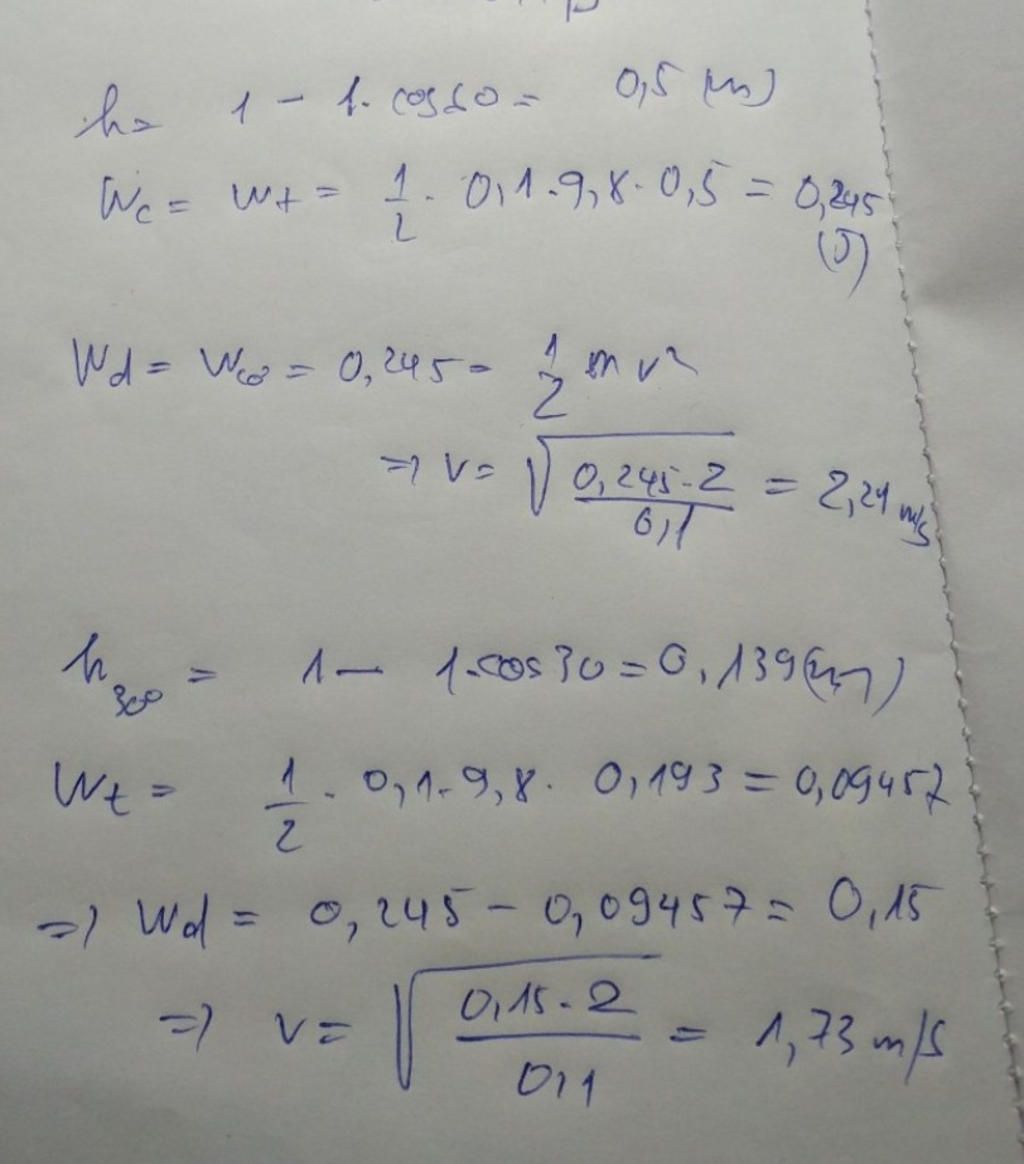 h = 1 - 1. cos60 = 0,5 (m)
Wc = Wt = 1/2 . 0,1.9,8.0,5 = 0,245 (J)
Wd = Wco = 0,245 = 1/2 m v²
=> v = √(0,245.2/0,1) = 2,21 m/s
h 30° = 1 - 1.cos30 = 0,139(m)
Wt = 1/2 . 0,1.9,8. 0,193 = 0,09457
=> Wd = 0,245 - 0,09457 = 0,15
=> v = √(0,15.2/0,1) = 1,73 m/s